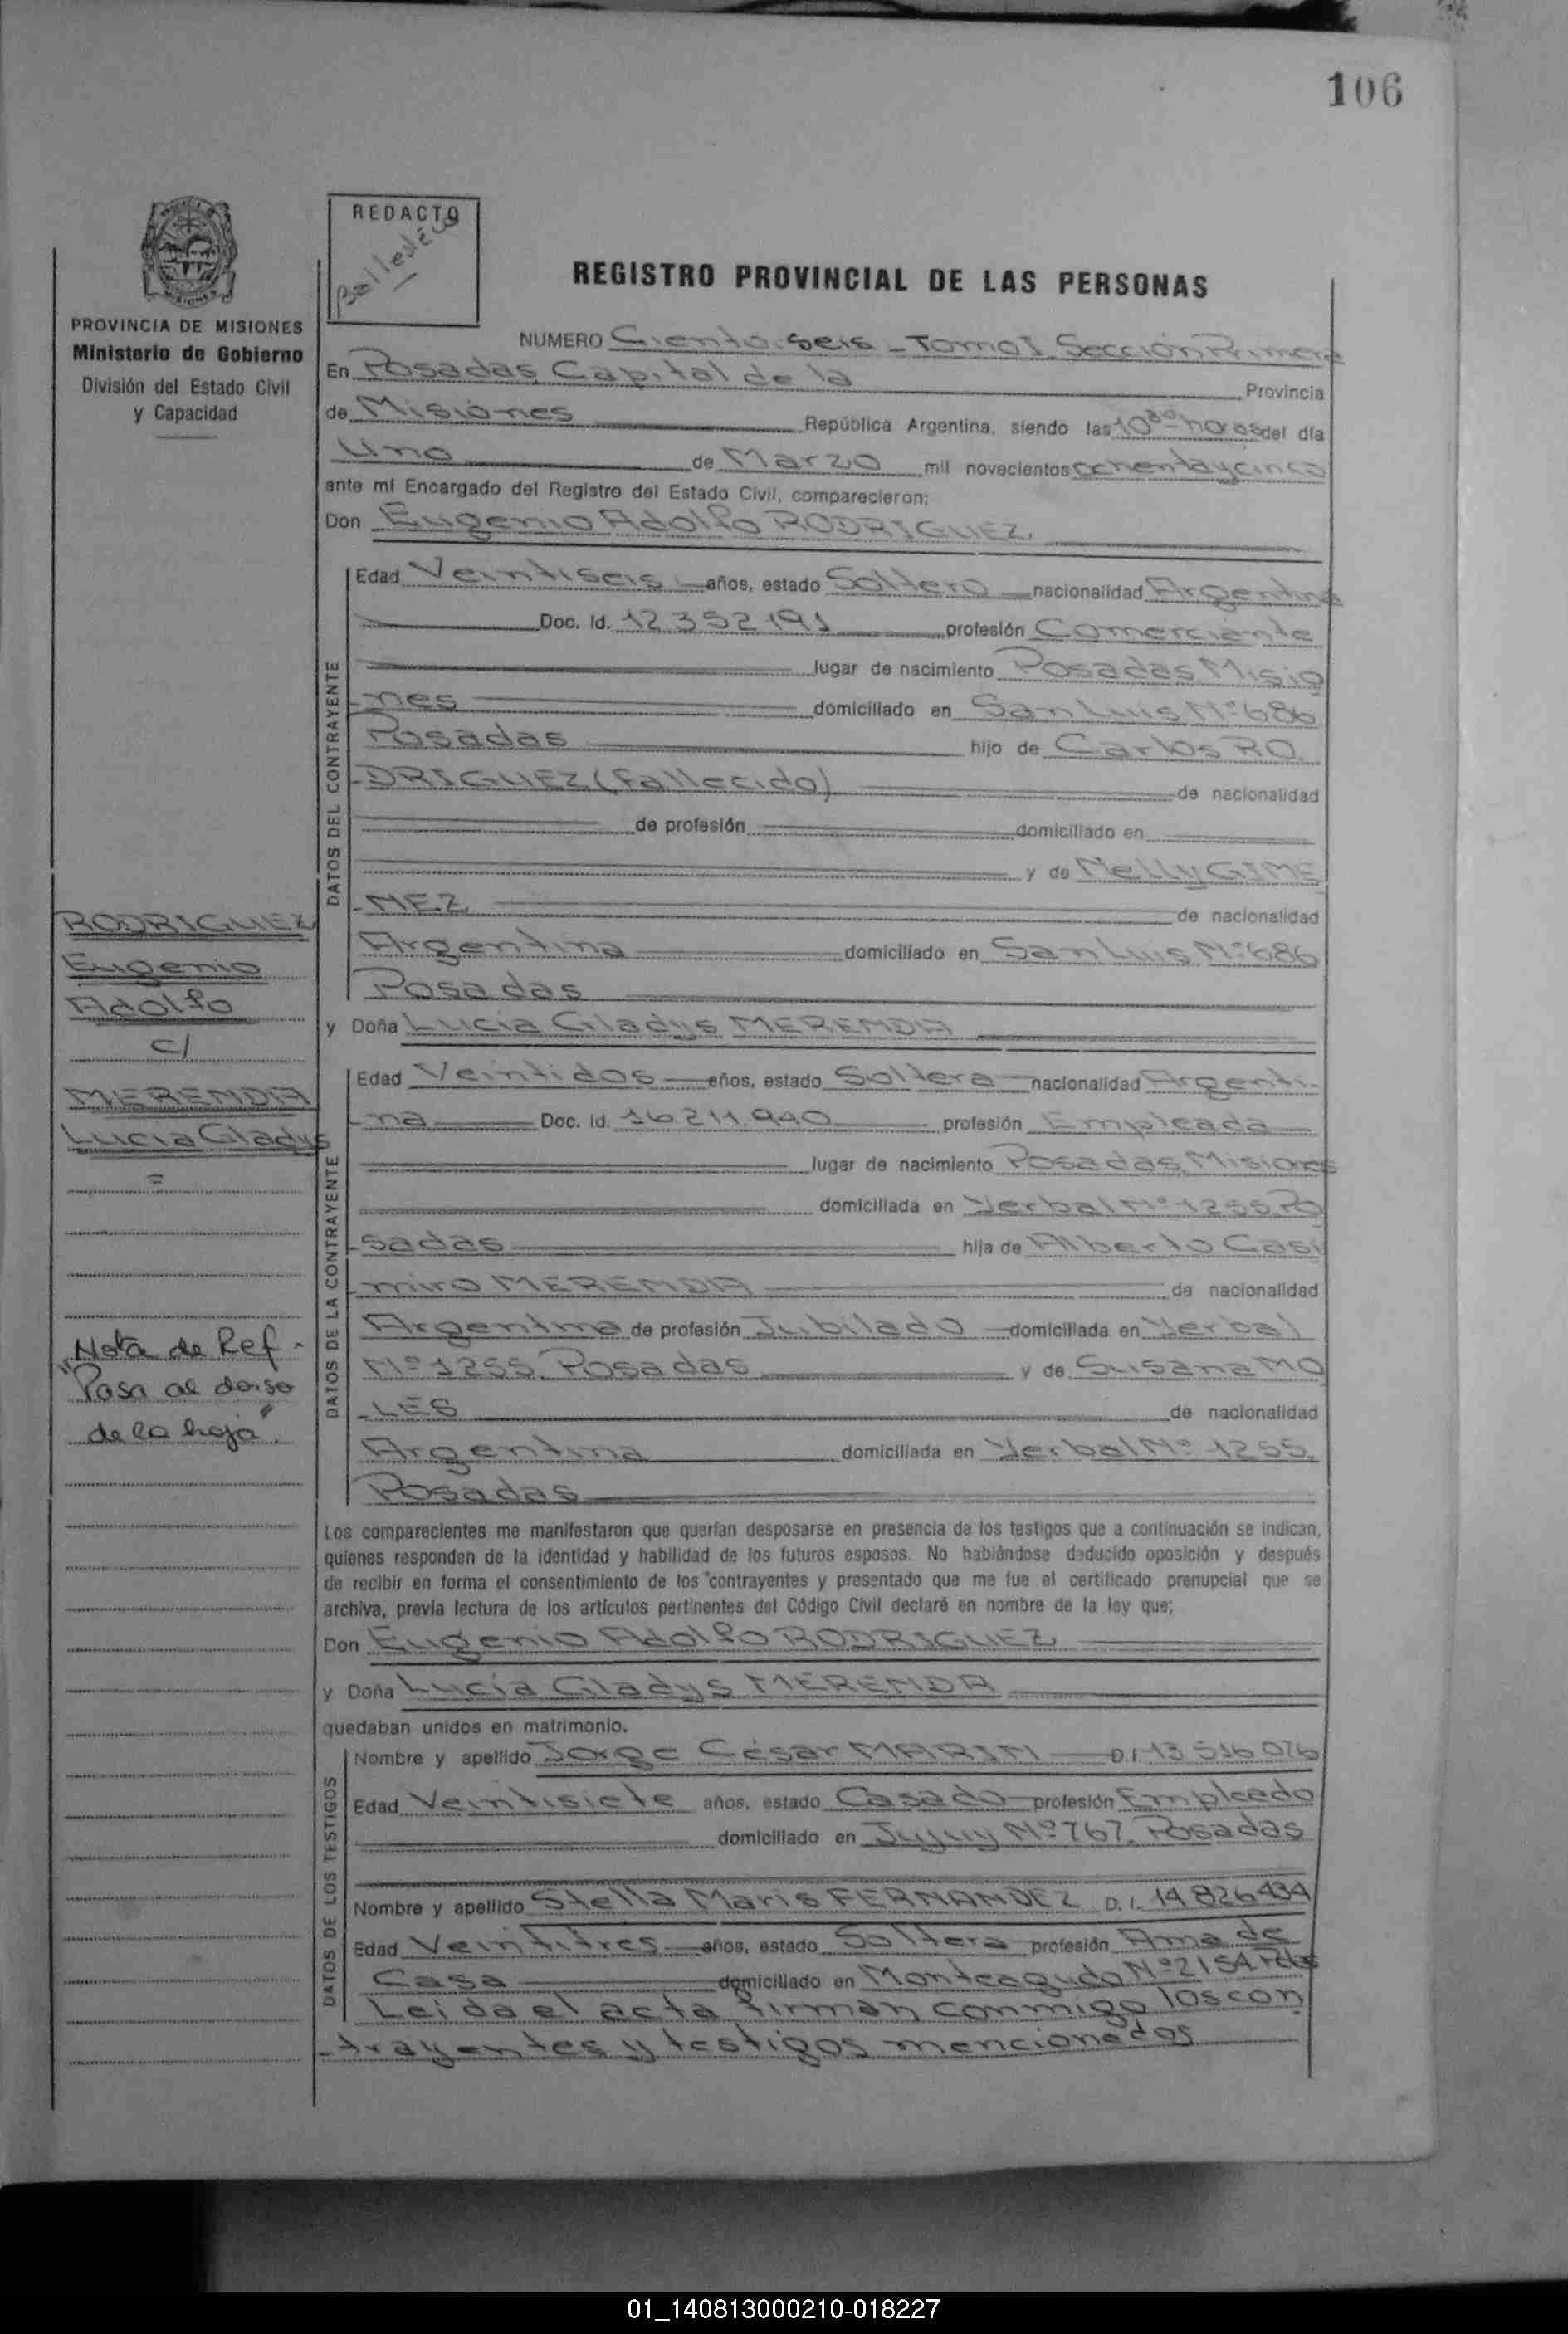 106
REDACTO
REGISTRO PROVINCIAL DE LAS PERSONAS
PROVINCIA DE MISIONES
Ministerio de Gobierno
División del Estado Civil
y Capacidad
NUMERO Ciento seis - Tomo I Sección Primera
En Posadas, Capital de la Provincia
de Misiones República Argentina, siendo las 10 30 horas del día
Uno de Marzo mil novecientos ochenta y cinco
ante mí Encargado del Registro del Estado Civil, comparecieron:
Don Eugenio Adolfo RODRIGUEZ
DATOS DEL CONTRAYENTE
Edad Veintiseis años, estado Soltero nacionalidad Argentina
Doc. Id. 12.352.191 profesión Comerciante
lugar de nacimiento Posadas Misio
nes domiciliado en San Luis Nº 686
Posadas hijo de Carlos RO
DRIGUEZ (fallecido) de nacionalidad
de profesión domiciliado en
y de Nelly GIME
NEZ de nacionalidad
Argentina domiciliado en San Luis Nº 686
Posadas
y Doña Lucia Gladys MERENDA
DATOS DE LA CONTRAYENTE
Edad Veintidos años, estado Soltera nacionalidad Argenti-
na Doc. Id. 16.211.940 profesión Empleada
lugar de nacimiento Posadas, Misiones
domiciliada en Yerbal Nº 1255 Po
sadas hija de Alberto Casi
miro MERENDA de nacionalidad
Argentina de profesión Jubilado domiciliada en Yerbal
Nº 1255. Posadas y de Susana MO
LES de nacionalidad
Argentina domiciliada en Yerbal Nº 1255.
Posadas
RODRIGUEZ
Eugenio
Adolfo
c/
MERENDA
Lucia Gladys
=
Nota de Ref.
"Pasa al dorso
de la hoja".
Los comparecientes me manifestaron que querían desposarse en presencia de los testigos que a continuación se indican,
quienes responden de la identidad y habilidad de los futuros esposos. No habiéndose deducido oposición y después
de recibir en forma el consentimiento de los contrayentes y presentado que me fue el certificado prenupcial que se
archiva, previa lectura de los artículos pertinentes del Código Civil declaré en nombre de la ley que;
Don Eugenio Adolfo RODRIGUEZ
y Doña Lucia Gladys MERENDA
quedaban unidos en matrimonio.
DATOS DE LOS TESTIGOS
Nombre y apellido Jorge César MARIN D.I. 13.516.076
Edad Veintisiete años, estado Casado profesión Empleado
domiciliado en Jujuy Nº 767. Posadas
Nombre y apellido Stella Maris FERNANDEZ D.I. 14.826.434
Edad Veintitres años, estado Soltera profesión Ama de
Casa domiciliado en Monteagudo Nº 2154 Pdas
Leida el acta firman conmigo los con
trayentes y testigos mencionados
01_140813000210-018227